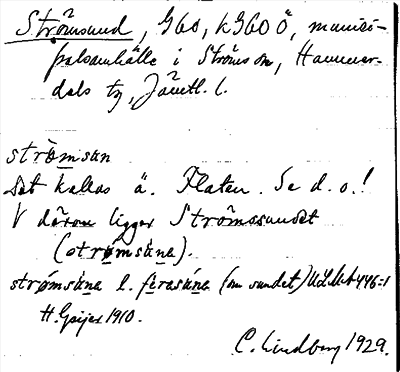 Strömsund, G60, k3600Ö, munici-
palsamhälle i Ströms sn, Hammer-
dals tg, Jämtl. l.
strömsun
Det kallas ä. Flaten. Se d. o.!
V därom ligger Strömssundet
(strømsùna).
strømsùna l. férasúna (om sundet) ULMA 446:1
H. Geijer 1910.
C. Lindberg 1929.